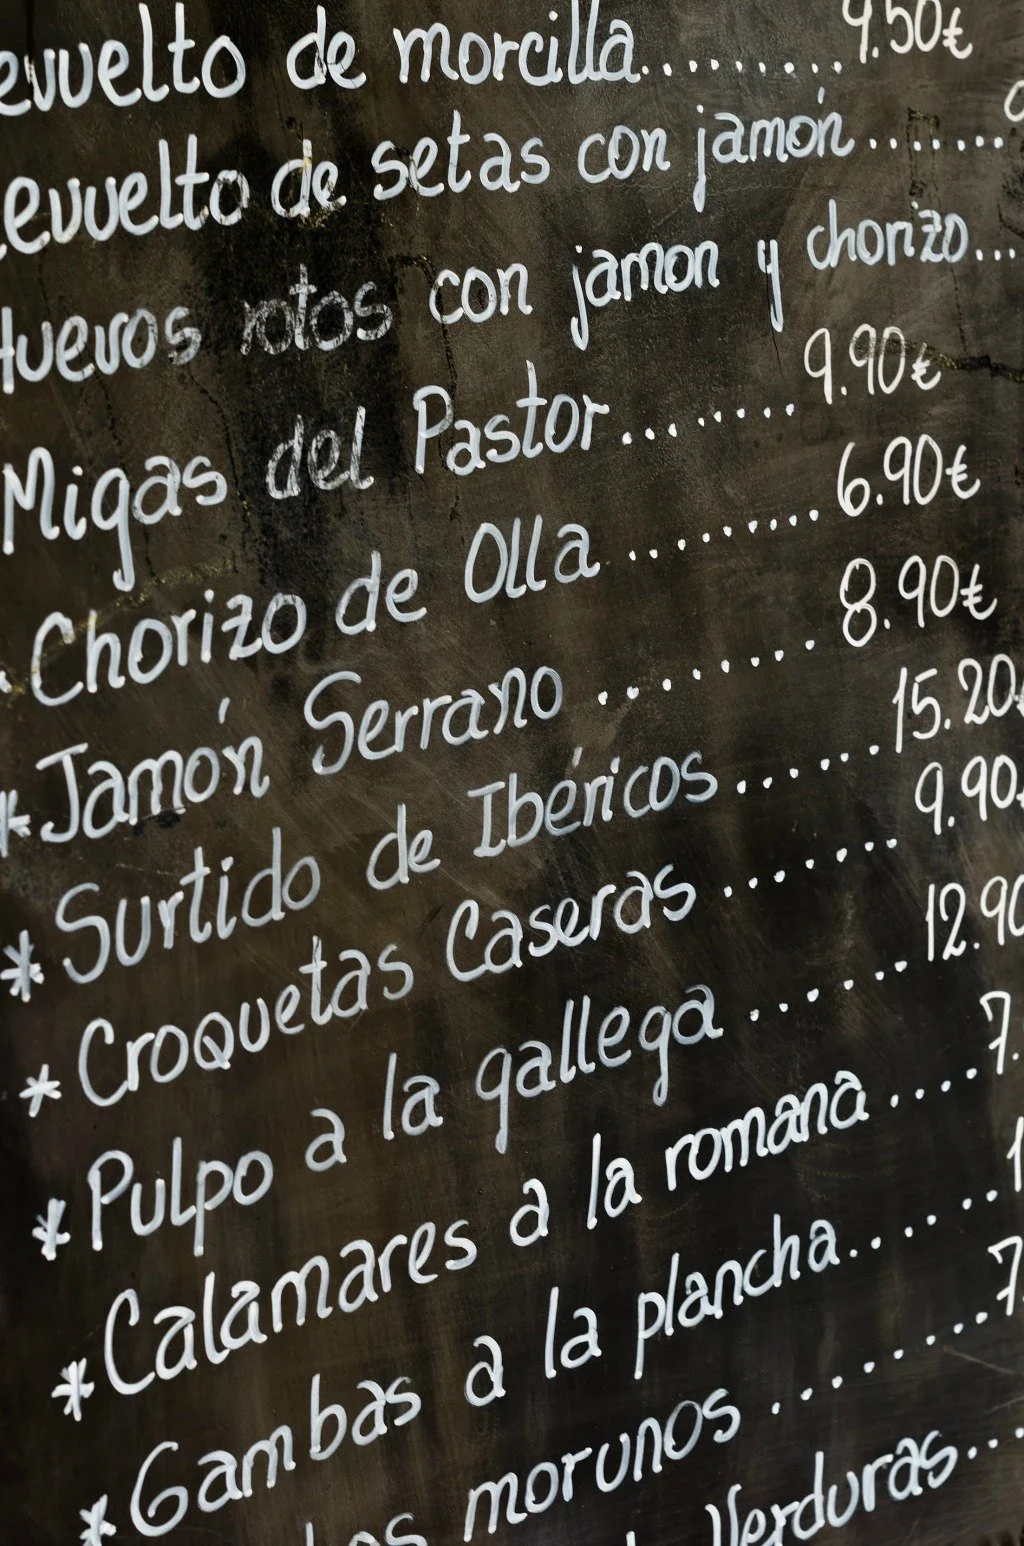 evuelto de morcilla.......... 9.50€
evuelto de setas con jamón.......
Huevos rotos con jamon y chorizo...
Migas del Pastor........ 9.90€
Chorizo de Olla ......... 6.90€
*Jamón Serrano ........ 8.90€
*Surtido de Ibéricos ...... 15.20€
*Croquetas Caseras ....... 9.90€
*Pulpo a la gallega ...... 12.90
*Calamares a la romana .... 7.
*Gambas a la plancha...... 1
morunos ......... 7.
Verduras...